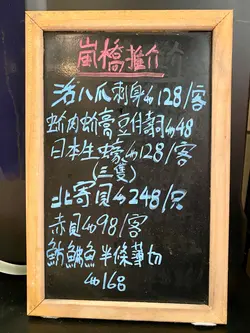 嵐橋推介
活八爪刺身$128/客
蚧肉蚧膏豆腐$48
日本生蠔$128/客
(三隻)
北寄貝$248/客
赤貝$98/客
魴鮁魚半條薄切
$168